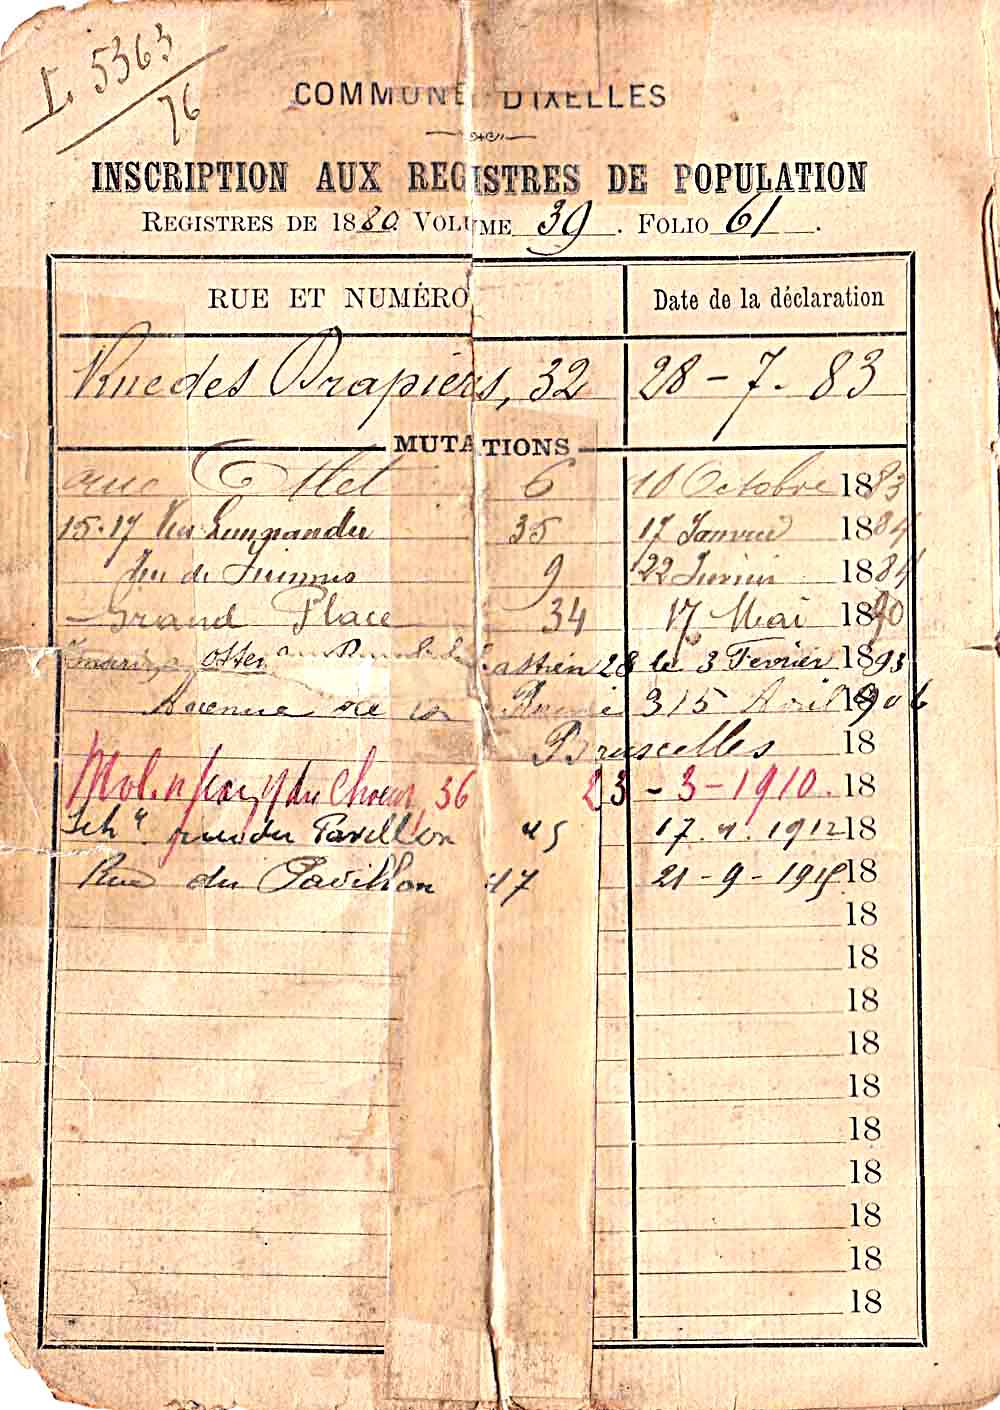 L. 5363
76
COMMUNE D'IXELLES
INSCRIPTION AUX REGISTRES DE POPULATION
REGISTRES DE 1880. VOLUME 39. FOLIO 61.
RUE ET NUMÉRO Date de la déclaration
Rue des Drapiers, 32 28-7.83
MUTATIONS
6 10 Octobre 1883
15-17 35 17 Janvier 1884
9 22 1884
Grand Place 34 17 Mai 1890
28 le 3 Fevrier 1893
Avenue de la 315 Avril 1906
Bruxelles 18
36 23-3-1910. 18
rue du Pavillon 45 1912 18
Rue du Pavillon 47 21-9-1915 18
18
18
18
18
18
18
18
18
18
18